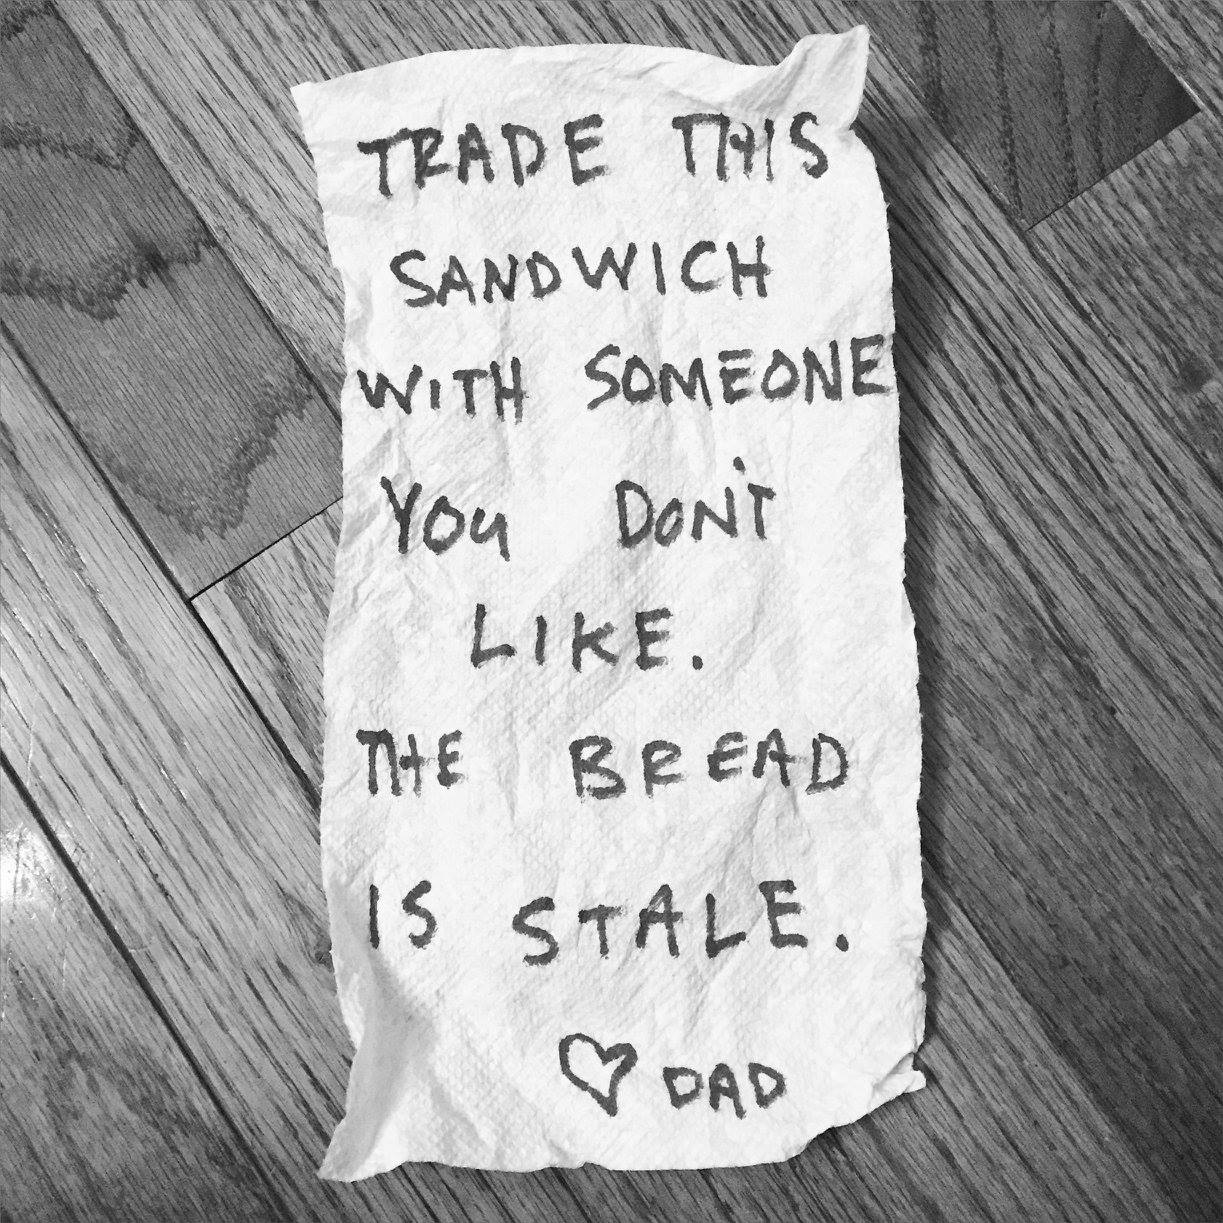 TRADE THIS
SANDWICH
WITH SOMEONE
YOU DON'T
LIKE.
THE BREAD
IS STALE.
♡ DAD